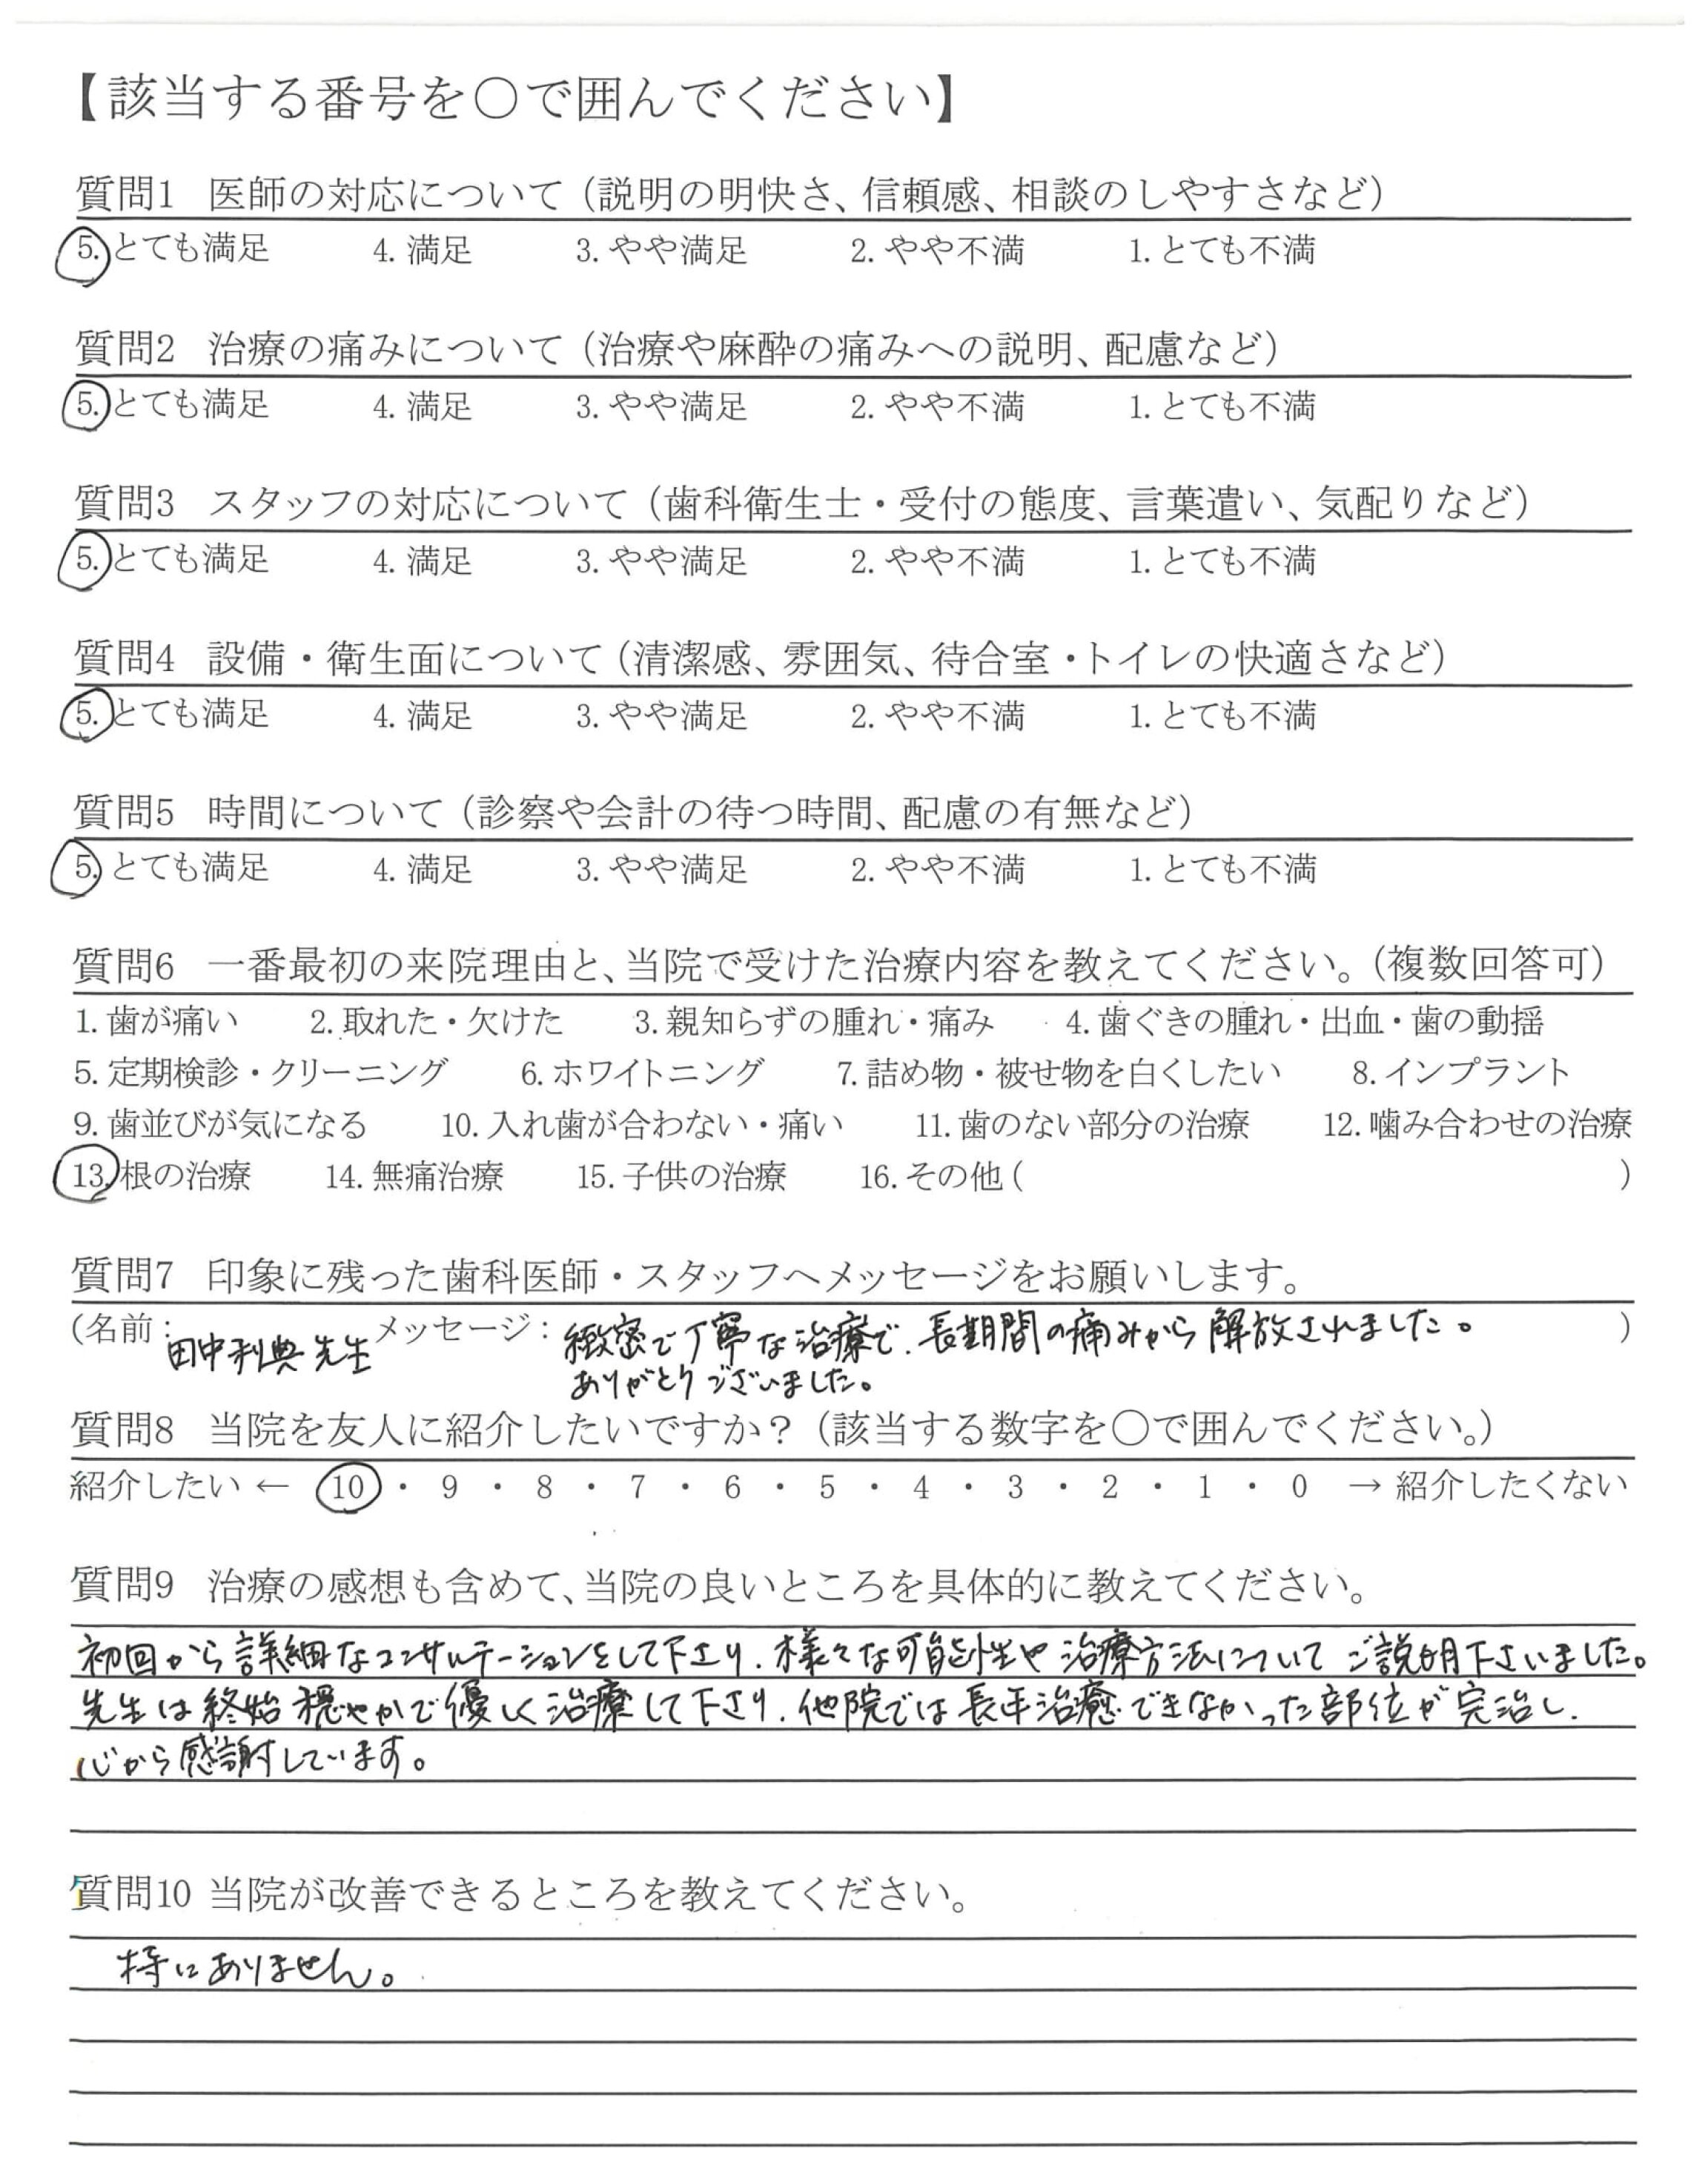 【該当する番号を〇で囲んでください】
質問1 医師の対応について（説明の明快さ、信頼感、相談のしやすさなど）
5. とても満足 4. 満足 3. やや満足 2. やや不満 1. とても不満
質問2 治療の痛みについて（治療や麻酔の痛みへの説明、配慮など）
5. とても満足 4. 満足 3. やや満足 2. やや不満 1. とても不満
質問3 スタッフの対応について（歯科衛生士・受付の態度、言葉遣い、気配りなど）
5. とても満足 4. 満足 3. やや満足 2. やや不満 1. とても不満
質問4 設備・衛生面について（清潔感、雰囲気、待合室・トイレの快適さなど）
5. とても満足 4. 満足 3. やや満足 2. やや不満 1. とても不満
質問5 時間について（診察や会計の待つ時間、配慮の有無など）
5. とても満足 4. 満足 3. やや満足 2. やや不満 1. とても不満
質問6 一番最初の来院理由と、当院で受けた治療内容を教えてください。（複数回答可）
1. 歯が痛い 2. 取れた・欠けた 3. 親知らずの腫れ・痛み 4. 歯ぐきの腫れ・出血・歯の動揺
5. 定期検診・クリーニング 6. ホワイトニング 7. 詰め物・被せ物を白くしたい 8. インプラント
9. 歯並びが気になる 10. 入れ歯が合わない・痛い 11. 歯のない部分の治療 12. 噛み合わせの治療
13. 根の治療 14. 無痛治療 15. 子供の治療 16. その他（ ）
質問7 印象に残った歯科医師・スタッフへメッセージをお願いします。
（名前：田中利典先生 メッセージ：緻密で丁寧な治療で、長期間の痛みから解放されました。）
ありがとうございました。
質問8 当院を友人に紹介したいですか？（該当する数字を〇で囲んでください。）
紹介したい ← 10 ・ 9 ・ 8 ・ 7 ・ 6 ・ 5 ・ 4 ・ 3 ・ 2 ・ 1 ・ 0 → 紹介したくない
質問9 治療の感想も含めて、当院の良いところを具体的に教えてください。
初回から詳細なコンサルテーションをして下さり、様々な可能性や治療方法についてご説明下さいました。
先生は終始穏やかで優しく治療して下さり、他院では長年治癒できなかった部位が完治し、
心から感謝しています。
質問10 当院が改善できるところを教えてください。
特にありません。